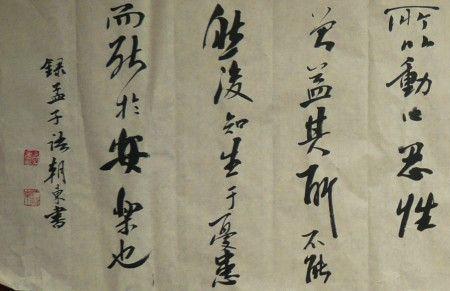 所以動心忍性
曾益其所不能
然後知生于憂患
而死於安樂也
錄孟子語朝東書